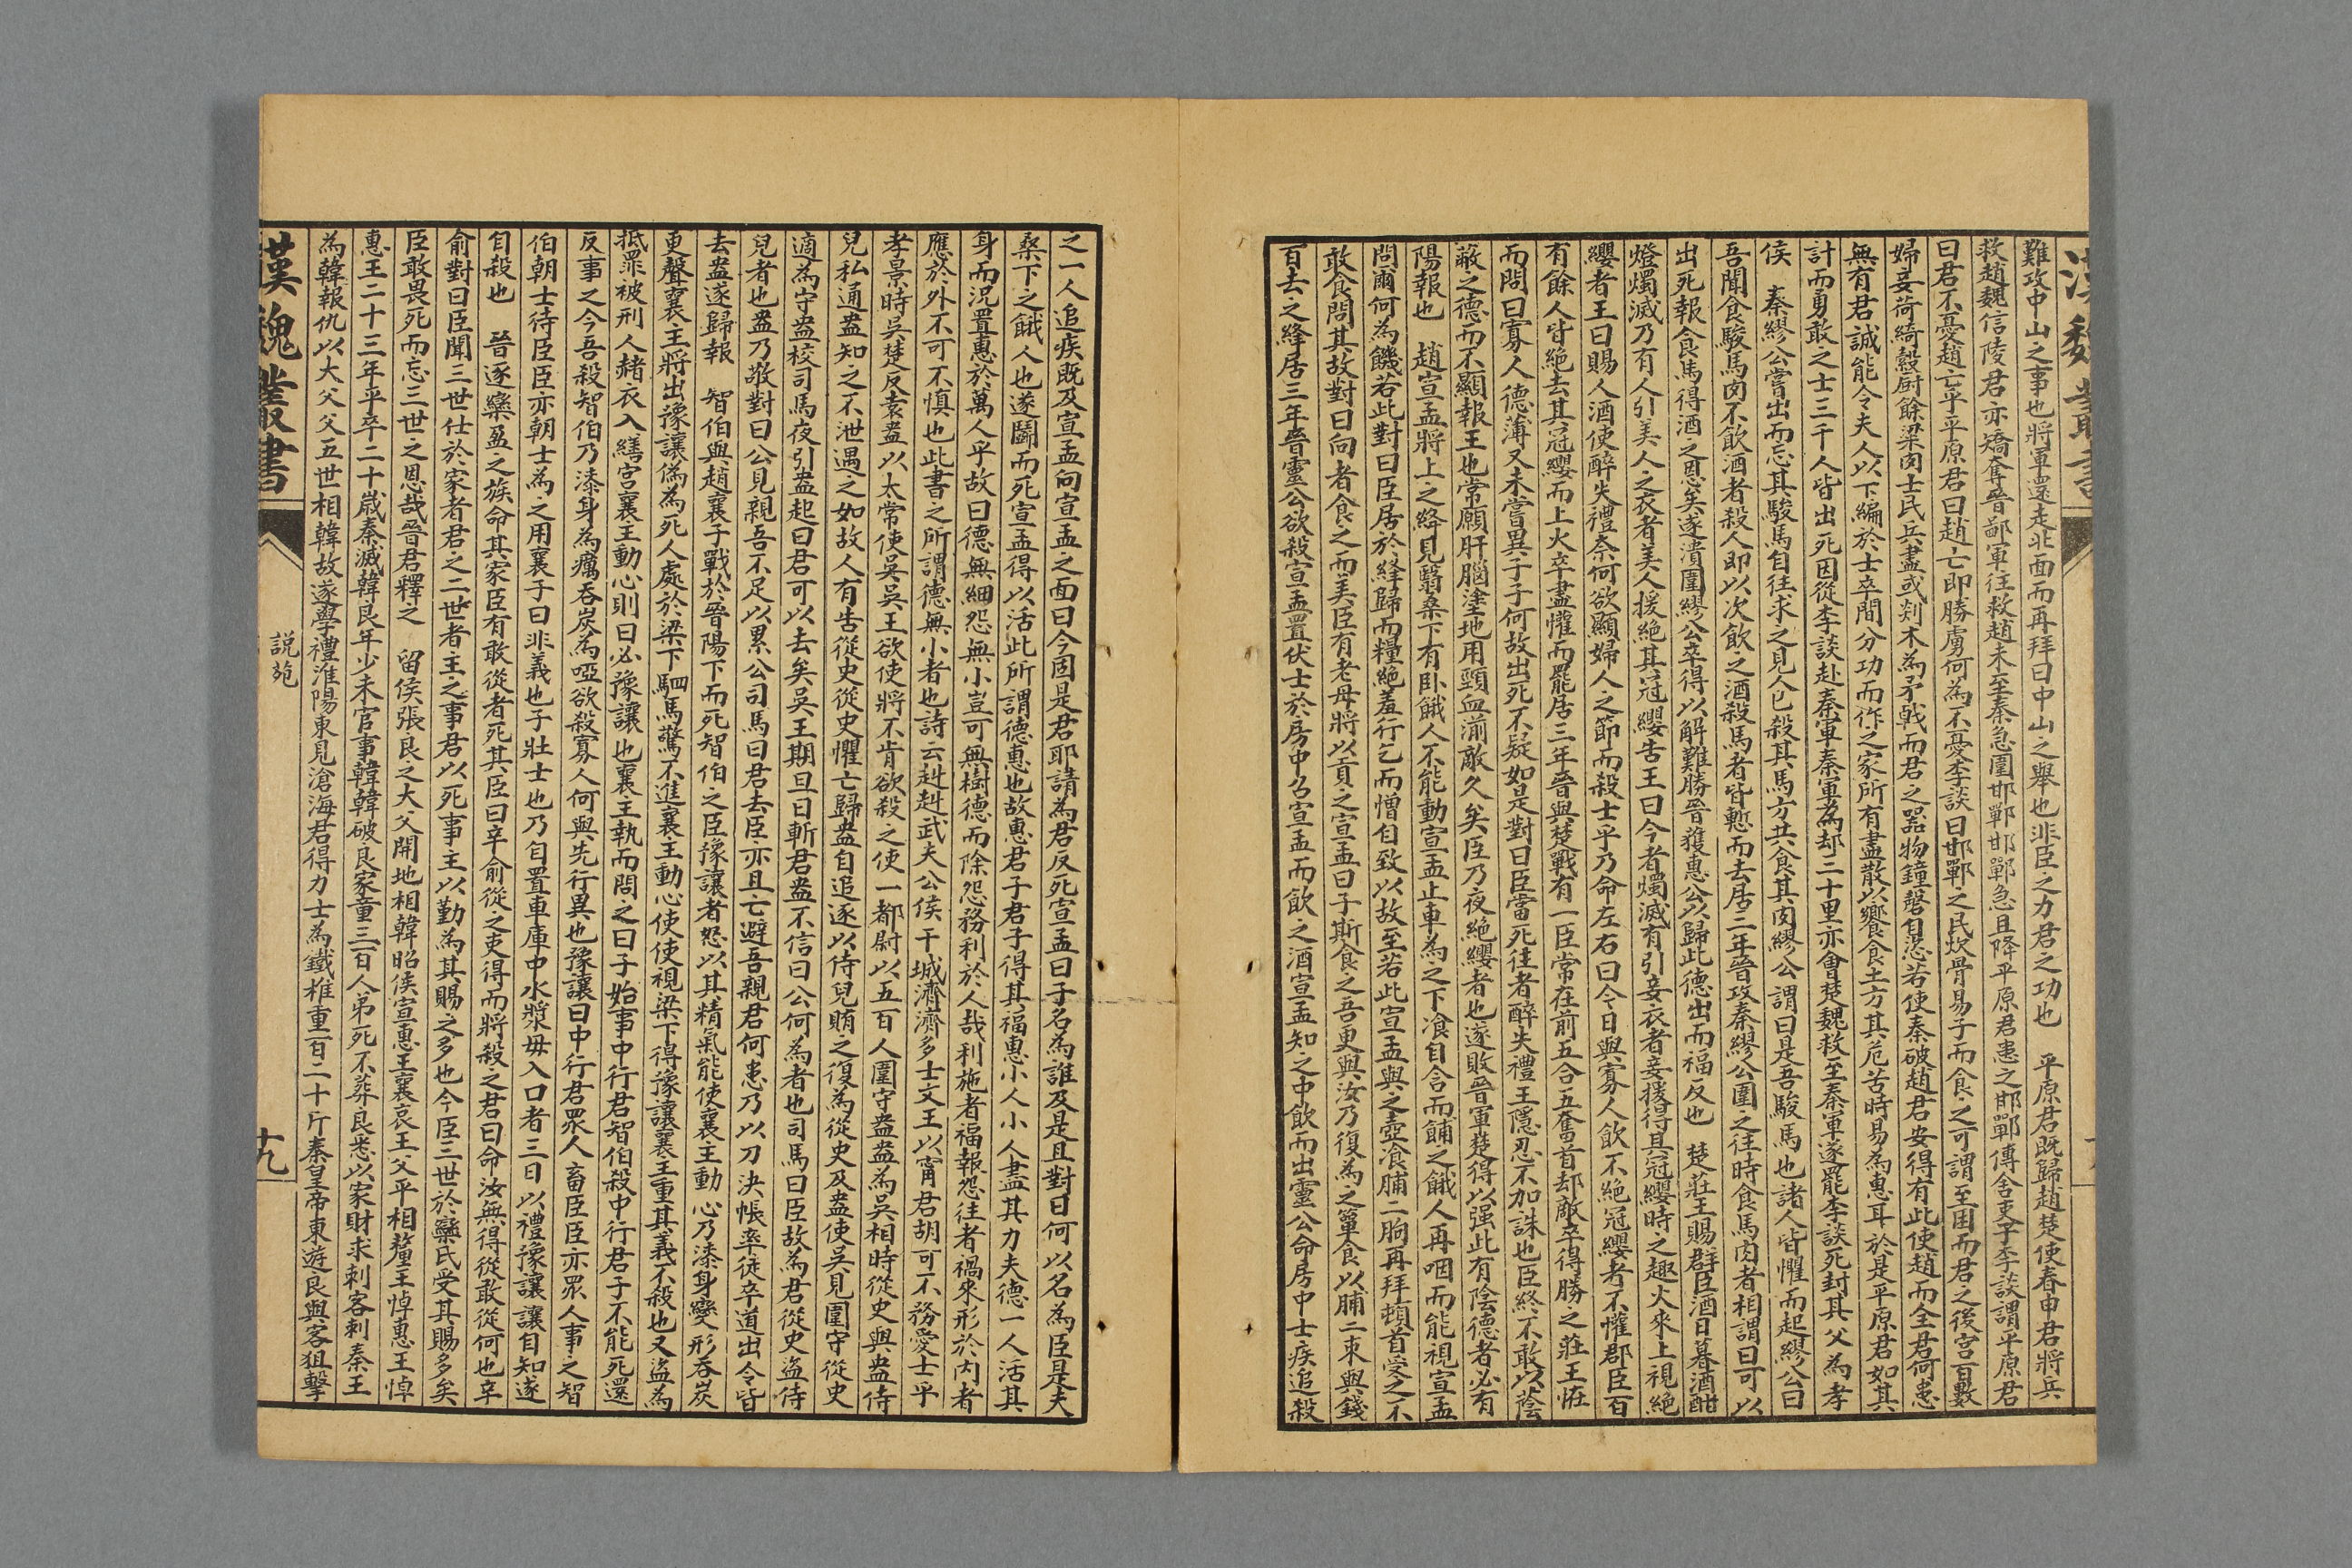 難攻中山之事也將軍還走北面而再拜曰中山之舉也非臣之力君之功也　平原君既歸趙楚使春申君將兵
救趙魏信陵君亦矯奪晉鄙軍往救趙未至秦急圍邯鄲邯鄲急且降平原君患之邯鄲傳舍吏子李談謂平原君
曰君不憂趙亡乎平原君曰趙亡即勝虜何為不憂李談曰邯鄲之民炊骨易子而食之可謂至困而君之後宮百數
婦妾荷綺縠廚餘梁肉士民兵盡或剡木為矛戟而君之器物鐘磬自恣若使秦破趙君安得有此使趙而全君何患
無有君誠能令夫人以下編於士卒間分功而作之家所有盡散以饗食士方其危苦時易為惠耳於是平原君如其
計而勇敢之士三千人皆出死因從李談赴秦軍秦軍為却三十里亦會楚魏救至秦軍遂罷李談死封其父為孝
侯　秦繆公嘗出而忘其駿馬自往求之見人已殺其馬方共食其肉繆公謂曰是吾駿馬也諸人皆懼而起繆公曰
吾聞食駿馬肉不飲酒者殺人即以次飲之酒殺馬者皆慙而去居二年晉攻秦繆公圍之往時食馬肉者相謂曰可以
出死報食馬得酒之恩矣遂潰圍繆公卒得以解難勝晉獲惠公以歸此德出而福反也　楚莊王賜群臣酒日暮酒酣
燈燭滅乃有人引美人之衣者美人援絕其冠纓告王曰今者燭滅有引妾衣者妾援得其冠纓時之趣火來上視絕
纓者王曰賜人酒使醉失禮奈何欲顯婦人之節而殺士乎乃命左右曰今日與寡人飲不絕冠纓者不懽郡臣百
有餘人皆絕去其冠纓而上火卒盡懽而罷居三年晉與楚戰有一臣常在前五合五奮首却敵卒得勝之莊王恠
而問曰寡人德薄又未嘗異子子何故出死不疑如是對曰臣當死往者醉失禮王隱忍不加誅也臣終不敢以蔭
蔽之德而不顯報王也常願肝腦塗地用頸血湔敵久矣臣乃夜絕纓者也遂敗晉軍楚得以强此有陰德者必有
陽報也　趙宣孟將上之絳見翳桑下有卧餓人不能動宣孟止車為之下飡自含而餔之餓人再咽而能視宣孟
問爾何為饑若此對曰臣居於絳歸而糧絕羞行乞而憎自致以故至若此宣孟與之壺飡脯二朐再拜頓首受之不
敢食問其故對曰向者食之而美臣有老母將以貢之宣孟曰子斯食之吾更與汝乃復為之簞食以脯二束與錢
百去之絳居三年晉靈公欲殺宣孟置伏士於房中召宣孟而飲之酒宣孟知之中飲而出靈公命房中士疾追殺
之一人追疾既及宣孟向宣孟之面曰今固是君耶請為君反死宣孟曰子名為誰及是且對曰何以名為臣是夫
桑下之餓人也遂鬭而死宣孟得以活此所謂德惠也故惠君子君子得其福惠小人小人盡其力夫德一人活其
身而況置惠於萬人乎故曰德無細怨無小豈可無樹德而除怨務利於人哉利施者福報怨往者禍來形於內者
應於外不可不慎也此書之所謂德無小者也詩云赳赳武夫公侯干城濟濟多士文王以甯君胡可不務愛士乎
孝景時吳楚反袁盎以太常使吳吳王欲使將不肯欲殺之使一都尉以五百人圍守盎盎為吳相時從史與盎侍
兒私通盎知之不泄遇之如故人有告從史從史懼亡歸盎自追逐以侍兒賄之復為從史及盎使吳見圍守從史
適為守盎校司馬夜引盎起曰君可以去矣吳王期旦日斬君盎不信曰公何為者也司馬曰臣故為君從史盜侍
兒者也盎乃敬對曰公見親吾不足以累公司馬曰君去臣亦且亡避吾親君何患乃以刀決帳率徒卒道出令皆
去盎遂歸報　智伯與趙襄子戰於晉陽下而死智伯之臣豫讓者怒以其精氣能使襄主動心乃漆身變形吞炭
更聲襄主將出豫讓偽為死人處於梁下駟馬驚不進襄主動心使使視梁下得豫讓襄主重其義不殺也又盜為
抵罪被刑人赭衣入繕宮襄主動心則曰必豫讓也襄主執而問之曰子始事中行君智伯殺中行君子不能死還
反事之今吾殺智伯乃漆身為癘吞炭為啞欲殺寡人何與先行異也豫讓曰中行君眾人畜臣臣亦眾人事之智
伯朝士待臣臣亦朝士為之用襄子曰非義也子壯士也乃自置車庫中水漿毋入口者三日以禮豫讓讓自知遂
自殺也　晉逐欒盈之族命其家臣有敢從者死其臣曰辛俞從之吏得而將殺之君曰命汝無得從敢從何也辛
俞對曰臣聞三世仕於家者君之二世者主之事君以死事主以勤為其賜之多也今臣三世於欒氏受其賜多矣
臣敢畏死而忘三世之恩哉晉君釋之　留侯張良之大父開地相韓昭侯宣惠王襄哀王父平相釐王悼惠王悼
惠王二十三年平卒二十歲秦滅韓良年少未官事韓韓破良家童三百人弟死不葬良悉以家財求刺客刺秦王
為韓報仇以大父父五世相韓故遂學禮淮陽東見滄海君得力士為鐵椎重百二十斤秦皇帝東遊良與客狙擊
漢魏叢書
說苑
十九